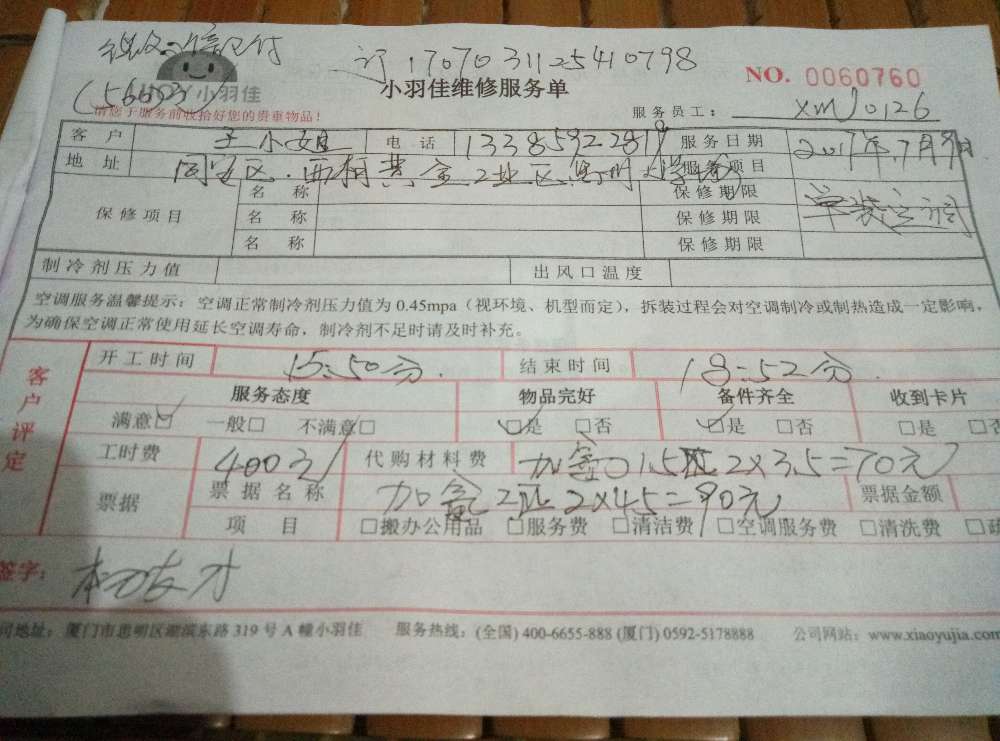 订1707031125410798
小羽佳
小羽佳维修服务单
NO. 0060760
请您于服务前收拾好您的贵重物品!
服务员工: xmJ0126
客 户 王小姐 电 话 13385922819 服务日期 2017年7月9日
地 址 同安区.西柯黄金工业区 服务项目 单装空调
保修项目 名 称 保修期限
名 称 保修期限
名 称 保修期限
制冷剂压力值 出风口温度
空调服务温馨提示:空调正常制冷剂压力值为 0.45mpa(视环境、机型而定),拆装过程会对空调制冷或制热造成一定影响,
为确保空调正常使用延长空调寿命,制冷剂不足时请及时补充。
客户评定
开工时间 15:50分. 结束时间 18:52分.
服务态度 物品完好 备件齐全 收到卡片
满意☑ 一般□ 不满意□ ☑是 □否 ☑是 □否 □是 □否
工时费 400元 代购材料费 加氟1.5匹2×35=70元
票据 票据名称 加氟2匹2×45=90元 票据金额
项 目 □搬办公用品 □服务费 □清洁费 □空调服务费 □清洗费
签字:
司地址:厦门市思明区湖滨东路 319 号 A 幢小羽佳 服务热线:(全国) 400-6655-888 (厦门) 0592-5178888 公司网站:www.xiaoyujia.com